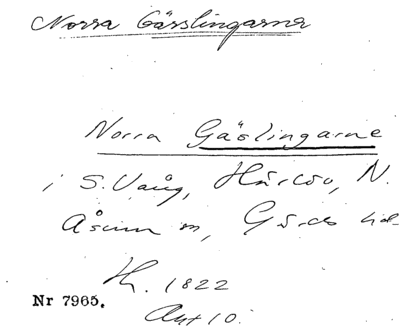 Norra Gässlingarna
Norra Gäslingarne
i S. Vång, Härlöv, N.
Åsum m, Gärds hd.
H. 1822
Akt 10.
Nr 7965.